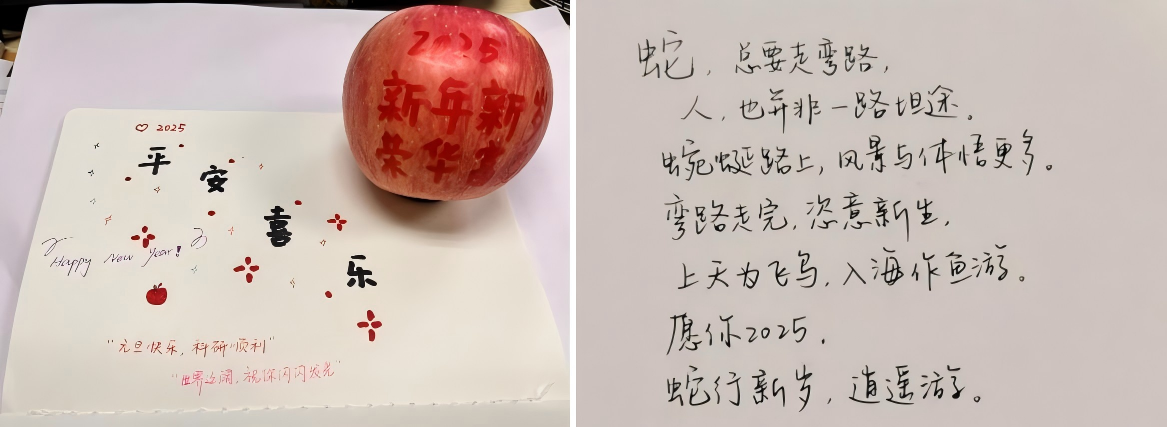 2025
新年新岁
荣华富
♡ 2025
平
安
喜
乐
Happy New Year!
“元旦快乐,科研顺利”
“世界辽阔,祝你闪闪发光”
蛇,总要走弯路,
人,也并非一路坦途。
蜿蜒路上,风景与体悟更多。
弯路走完,恣意新生,
上天为飞鸟,入海作鱼游。
愿你2025,
蛇行新岁,逍遥游。